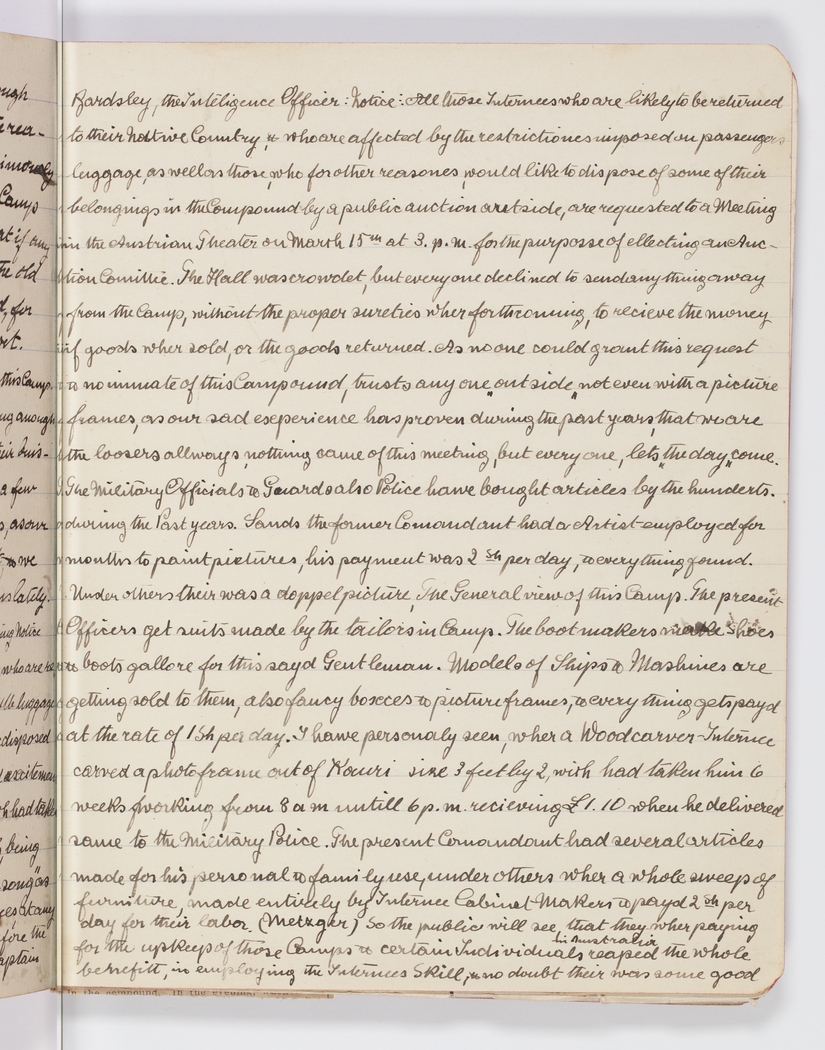 Bardsley, the Inteligence Officer: Notice: All those Internees who are likely to be returned
to their Native Country, & who are affected by the restrictiones imposed on passengers
luggage, as well as those, who for other reasones, would like to dispose of some of their
belongings in the Compound by a public auction outside, are requested to a Meeting
in the Austrian Theater on March 15th at 3. p. m. for the purposse of ellecting an Auc-
tion Comittie. The Hall was crowdet, but everyone declined to send any thing away
from the Camp, without the proper sureties wher forthcoming, to recieve the money
if goods wher sold, or the goods returned. As no one could grant this request
& no inmate of this Campound, trusts any one "outside" not even with a picture
frames, as our sad eseperience has proven during the past years, that we are
the loosers allways, nothing came of this meeting, but every one, lets "the day" come.
The Military Officials & Guards also Police hawe bought articles by the hunderts.
during the Past years. Sands the former Comandant had a Artist employed for
months to paint pictures, his payment was 2 Sh per day, & everything found.
Under others their was a doppel picture, The General view of this Camp. The present
Officers get suits made by the tailors in Camp. The bootmakers made Shoes
& boots gallore for this sayd Gentleman. Models of Ships & Mashines are
getting sold to them, also fancy boxces & picture frames, & every thing gets payd
at the rate of 1 Sh per day. I hawe personaly seen, wher a Woodcarver-Internee
carved a photoframe out of Kauri size 3 feet by 2, wich had taken him 6
weeks working from 8 a m untill 6 p. m. recieving £1.10 when he delivered
same to the Military Police. The present Comandant had several articles
made for his personal & family use, under others wher a whole sweep of
furniture, made entirely by Internee Cabinet Makers & payd 2 Sh per
day for their labor. (Metzger) So the public will see, that they wher paying
for the upkeep of those Camps & certain Individuals in Australia reaped the whole
benefitt, in employing the Internees Skill, & no doubt their was some good